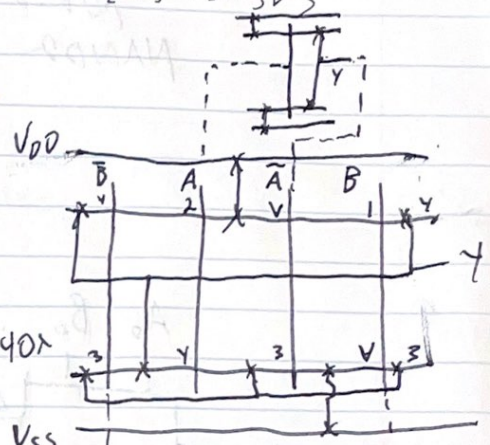 Y
VDD
B̅ A A̅ B
Y 2 V 1 Y
Y
40λ
3 Y 3 V 3
VSS